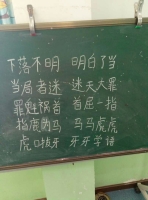 下落不明 明白了当
当局者迷 迷天大罪
罪魁祸首 首屈一指
指鹿为马 马马虎虎
虎口拔牙 牙牙学语